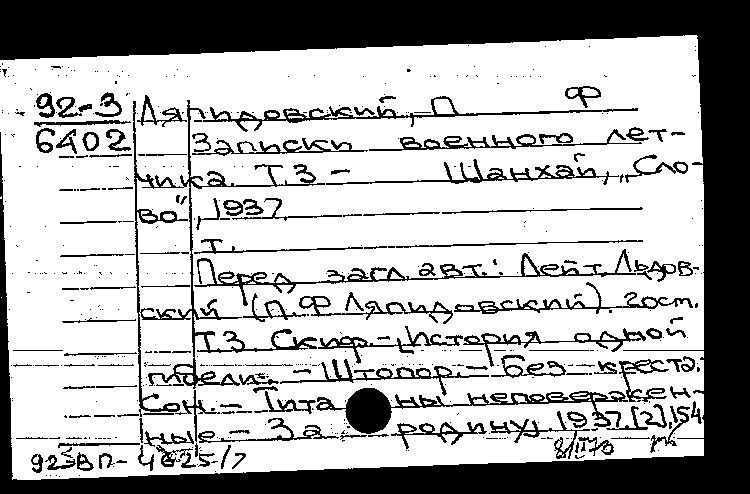 92-3 Ляпидовский, П Ф
6402 Записки военного лет-
чика. Т.3 - Шанхай, „Сло-
во", 1937.
т.
Перед загл. авт.: Лейт. Льдов-
ский (П.Ф Ляпидовский). 2ост.
Т.3 Скиф.-,История одной
гибели. - Штопор. - Без креста.
Сон. - Титаны неповержен-
ные. - За родину, 1937. [2], 154
92ЗВП- 4625/7